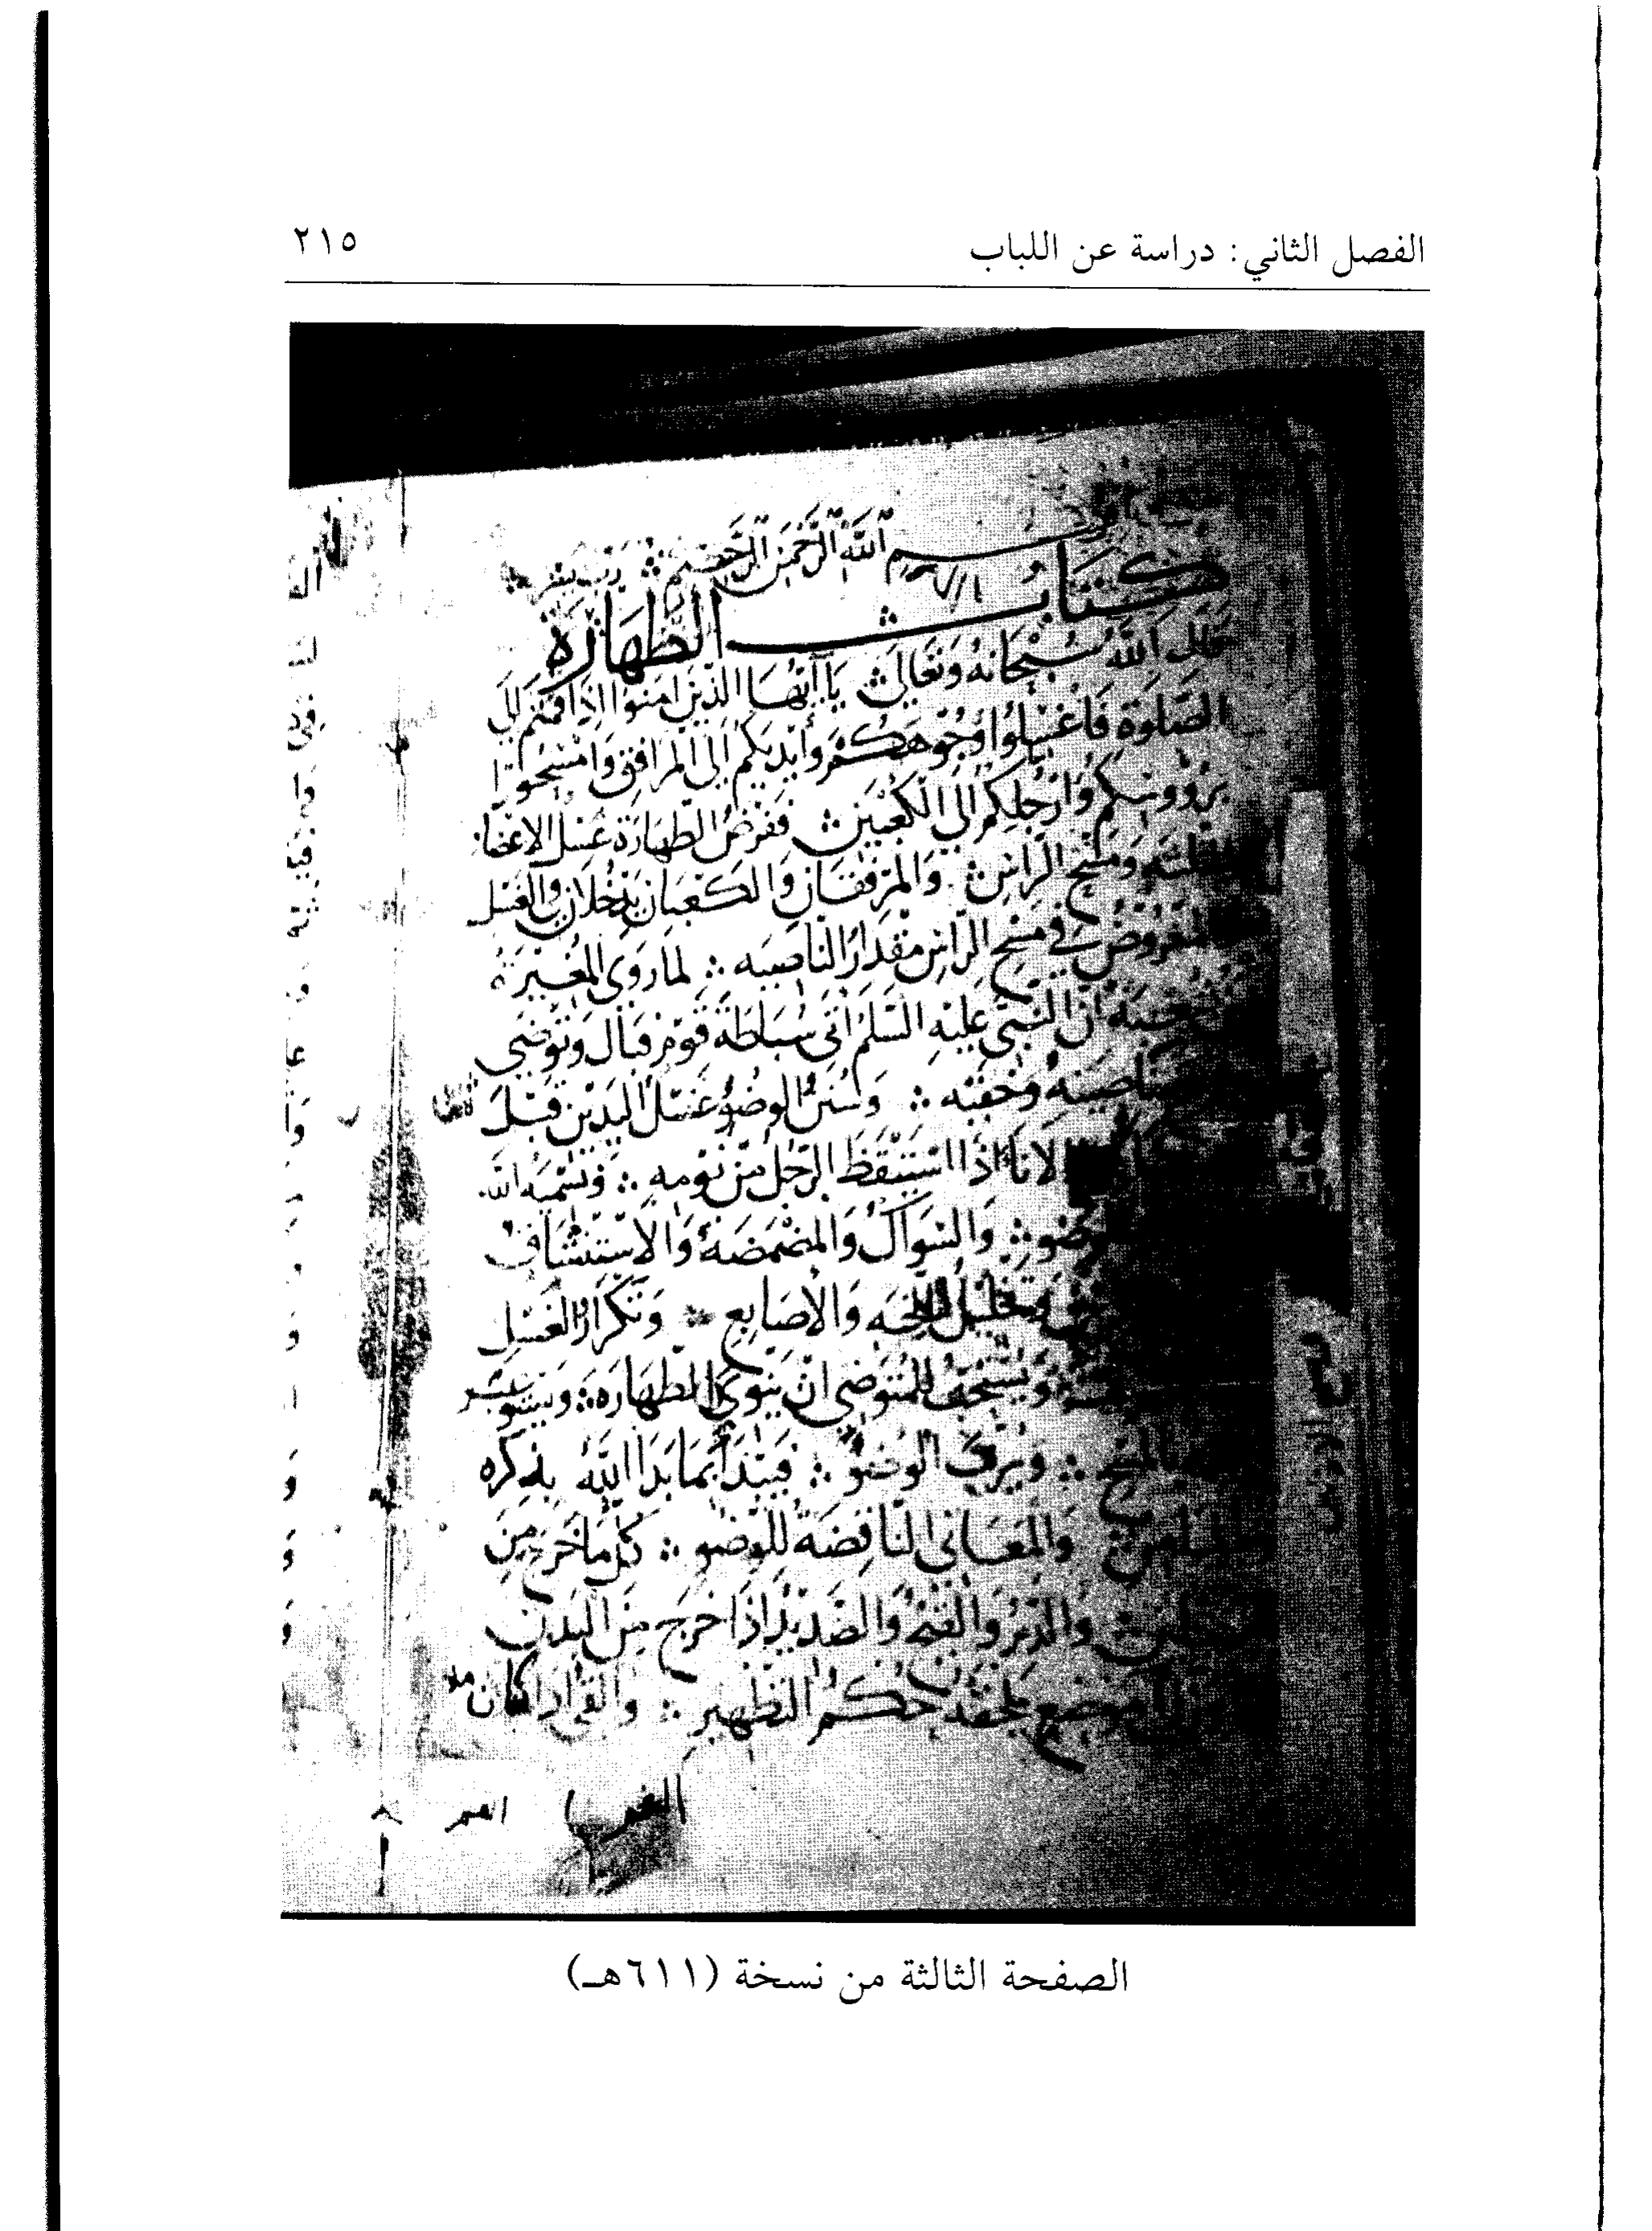 الفصل الثاني: دراسة عن اللباب
٢١٥
بسم الله الرحمن الرحيم ؞ رب يسر
كتاب الطهارة
قال الله سبحانه وتعالى ؞ يا أيها الذين امنوا اذا قمتم إلى
الصلوة فاغسلوا وجوهكم وأيديكم إلى المرافق وامسحوا
برؤوسكم وأرجلكم إلى الكعبين ؞ ففرض الطهارة غسل الاعضاء
الثلثه ومسح الراس ؞ والمرفقان والكعبان يدخلان في الغسل
المفروض في مسح الراس مقدار الناصيه ؞ لما روى المغيرة
شعبة ان النبي عليه السلم أتى سباطة قوم فبال وتوضى
ناصيته وخفيه ؞ وسنن الوضوء غسل اليدين قبل
الاناء اذا استيقظ الرجل من نومه ؞ وتسميه الله
الوضو ؞ والسواك والمضمضة والاستنشاق
وتخليل اللحيه والأصابع ؞ وتكرار الغسل
ويستحب للمتوضي ان ينوي الطهاره ؞ ويستوعب
بالمسح ؞ ويرتب الوضو ؞ فيبتدأ بما بدا الله بذكره
والمعاني الناقضة للوضو ؞ كل ما خرج من
والدم والقيح والصديد اذا خرج من البدن
موضع يلحقه حكم التطهير ؞ والقي اذا كان
الصفحة الثالثة من نسخة (٦١١هـ)